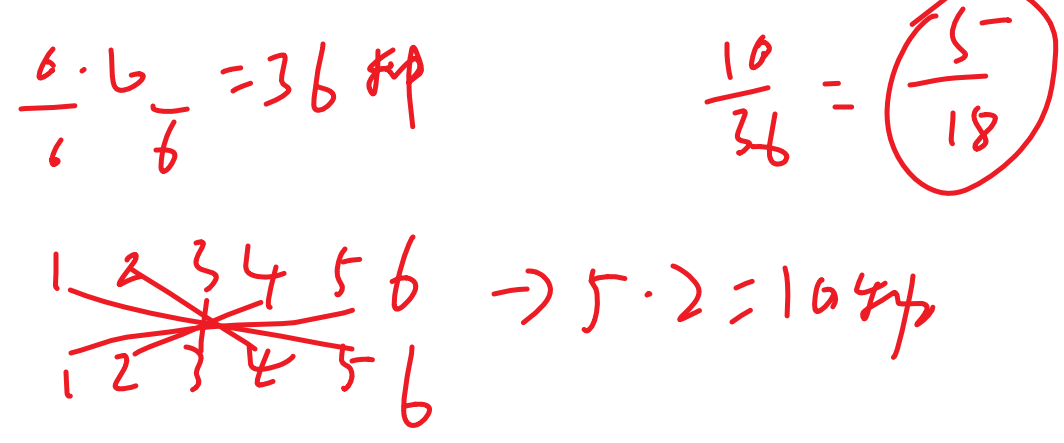 6/6 · 6/6 = 36
10/36 = 5/18
1 2 3 4 5 6
1 2 3 4 5 6
→ 5 · 2 = 10